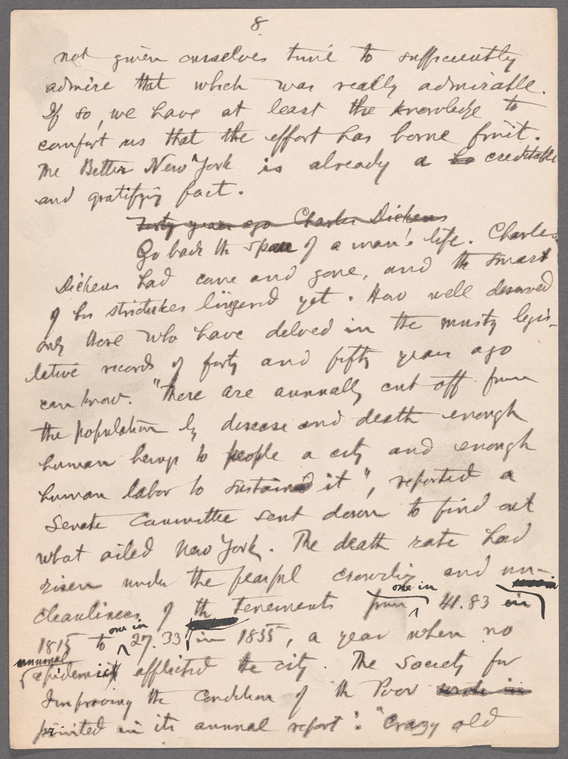 8
not given ourselves time to sufficiently
admire that which was really admirable.
If so, we have at least the knowledge to
comfort us that the effort has borne fruit.
The Better New York is already a creditable
and gratifying fact.
Forty years ago Charles Dickens
Go back the span of a man's life. Charles
Dickens had come and gone, and the smart
of his strictures lingered yet. How well deserved
only those who have delved in the musty legis-
lative records of forty and fifty years ago
can know. "There are annually cut off from
the population by disease and death enough
human beings to people a city and enough
human labor to sustain it", reported a
Senate Committee sent down to find out
what ailed New York. The death rate had
risen under the fearful crowding and un-
cleanliness of the tenements from one in 41.83 in
1815 to one in 27.33 in 1855, a year when no
unusual epidemic afflicted the city. The Society for
Improving the Condition of the Poor
printed in its annual report: "Crazy old